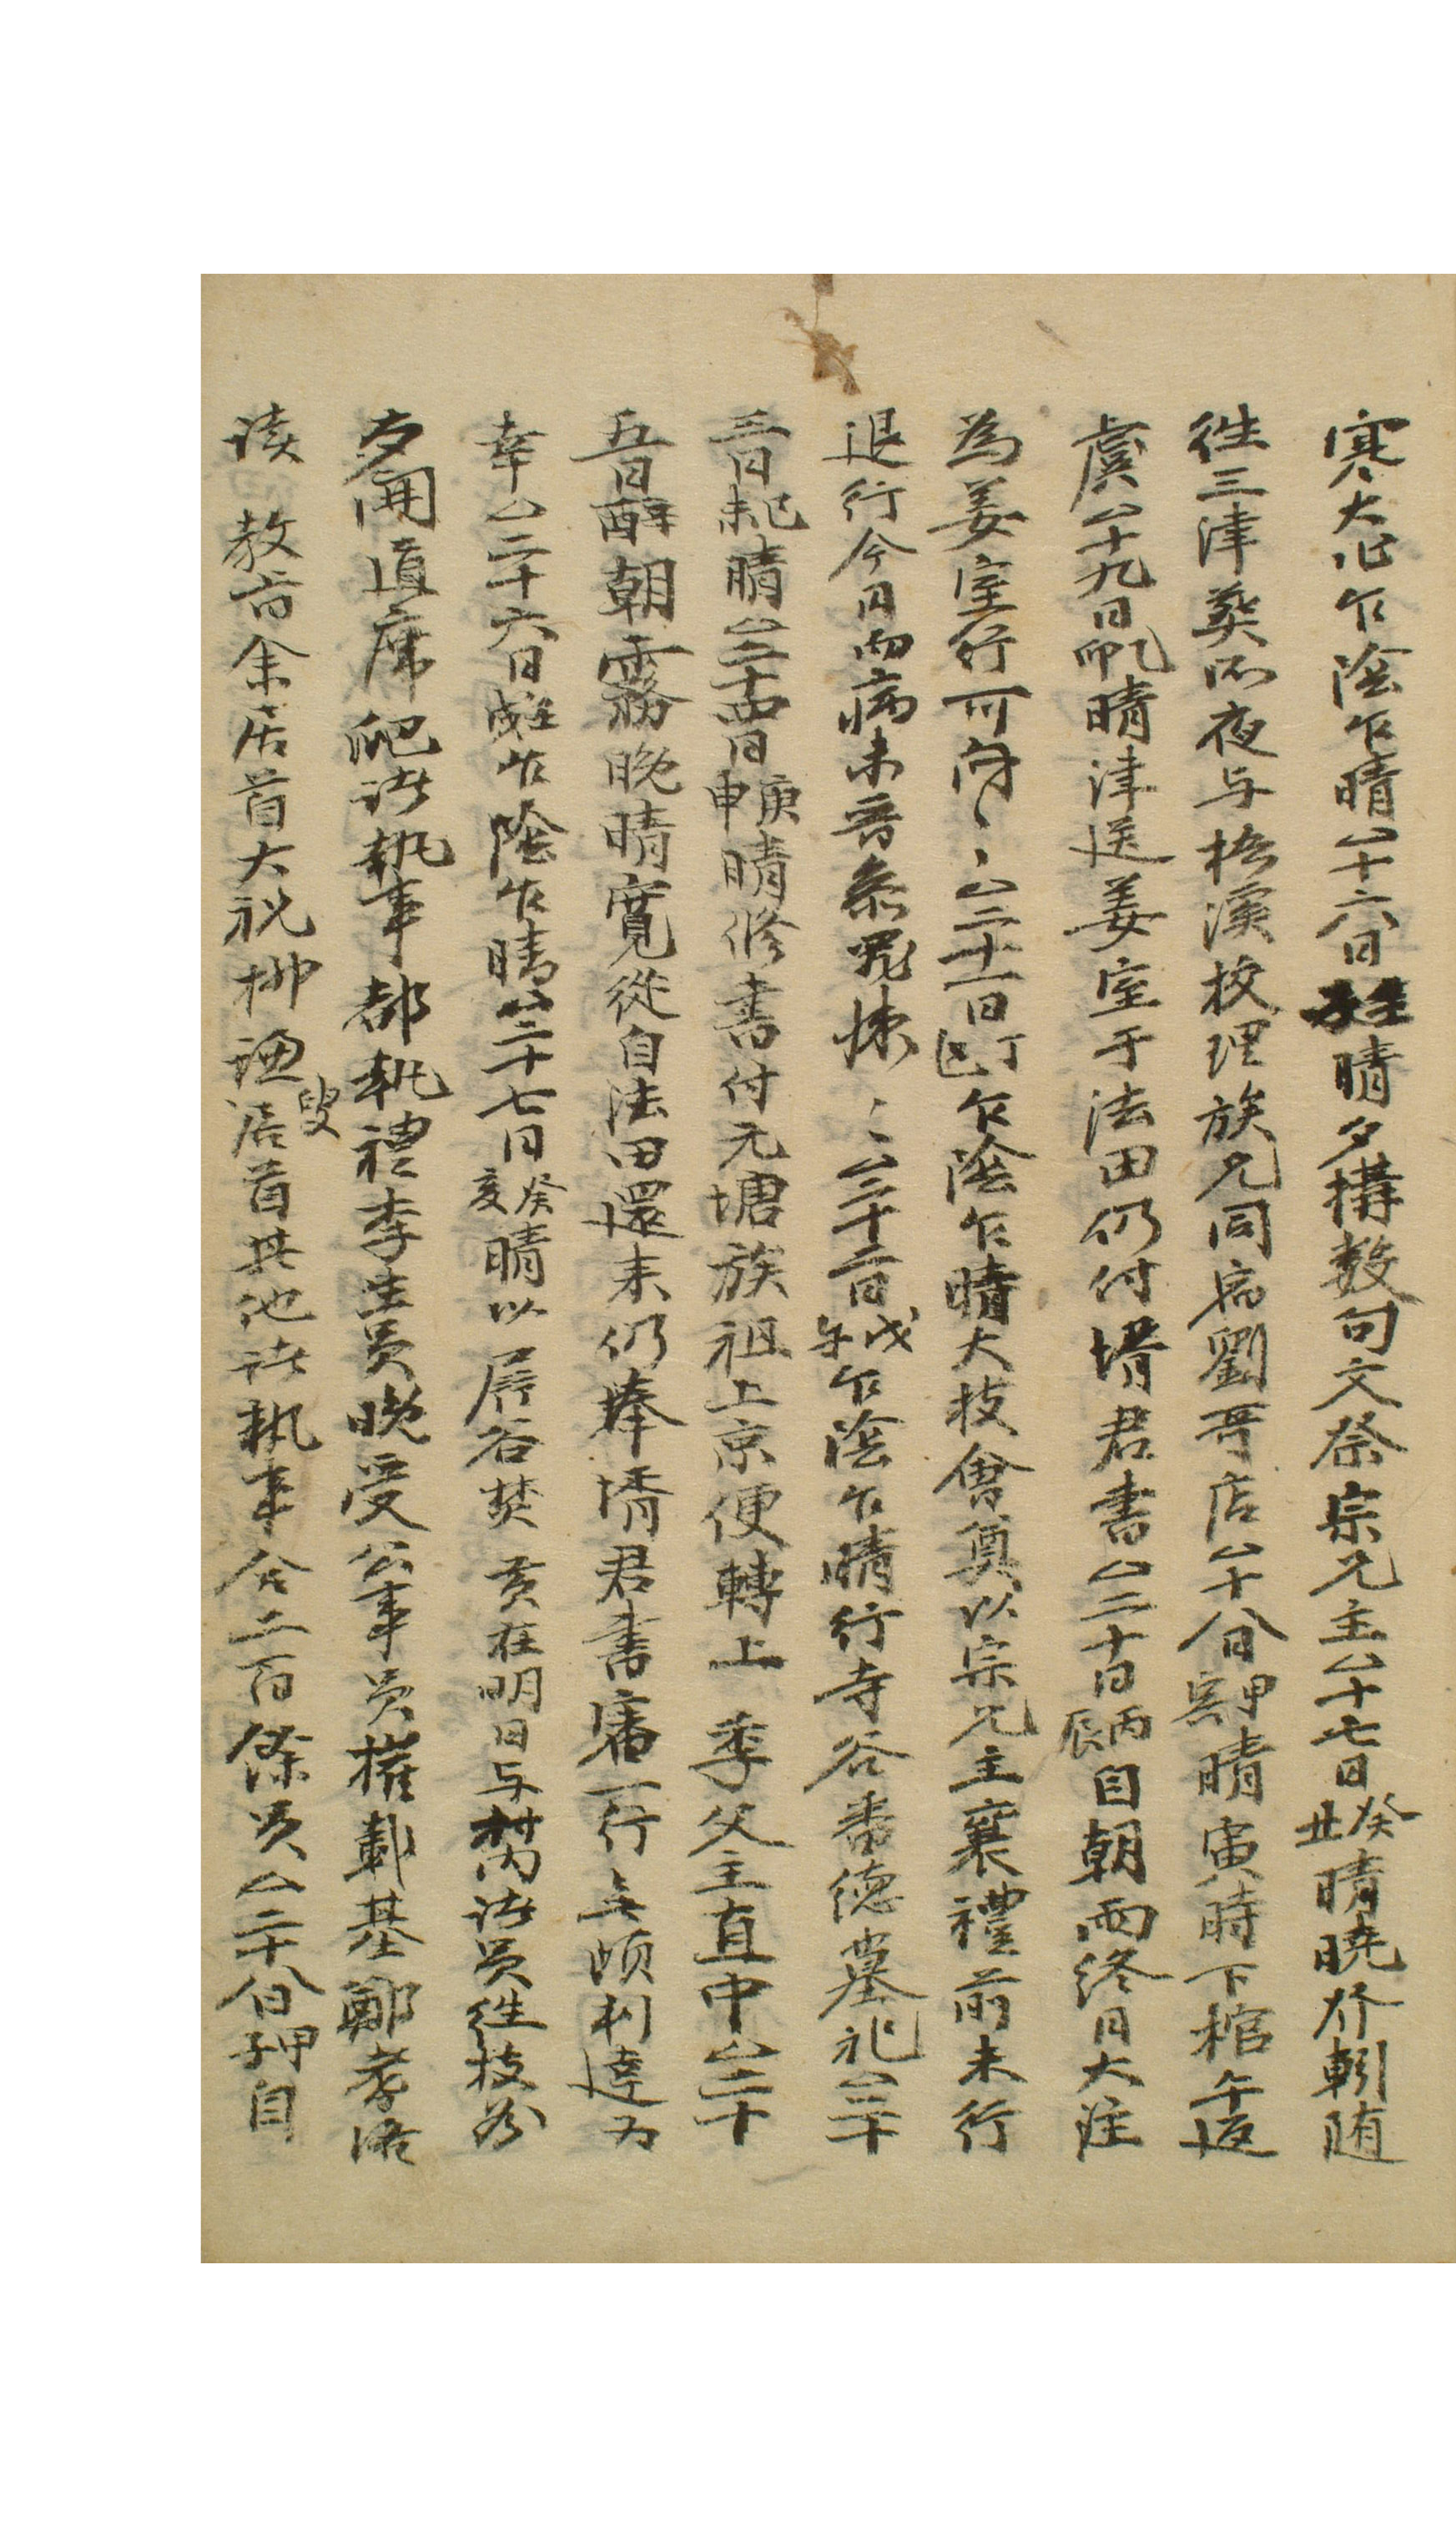 寒大作乍陰乍晴△十六日壬子晴夕構数句文祭宗兄主△十七日癸丑晴曉於軔随
徃三津葵所夜与梧溪校理族兄同宿劉哥店△十八日甲寅晴寅時下棺午返
虞△十九日乙卯晴津送姜室于法田仍付壻君書△二十日丙辰自朝雨終日大注
為姜室行可闷〻△二十一日丁巳乍陰乍晴大枝會奠以宗兄主襄禮前未行
退行今日而病未音叅罪悚〻△二十二日戊午乍陰乍晴行寺谷番德墓祀△二十
三日己未晴△二十四日庚申晴修書付元塘族祖上京便轉上 季父主直中△二十
五日辛酉朝霧晚晴寬從自法田還来仍奉壻君書審一行無頉利達為
幸△二十六日壬戌乍陰乍晴△二十七日癸亥晴以唇谷焚 黃在明日与村内諸員徃枝谷
夕開道席爬諸執事都執禮李生員晚受公事員權載基鄭孝洛
讀 教旨余居首大祝柳謏叟居首其他諸執事合二百餘員△二十八日甲子自